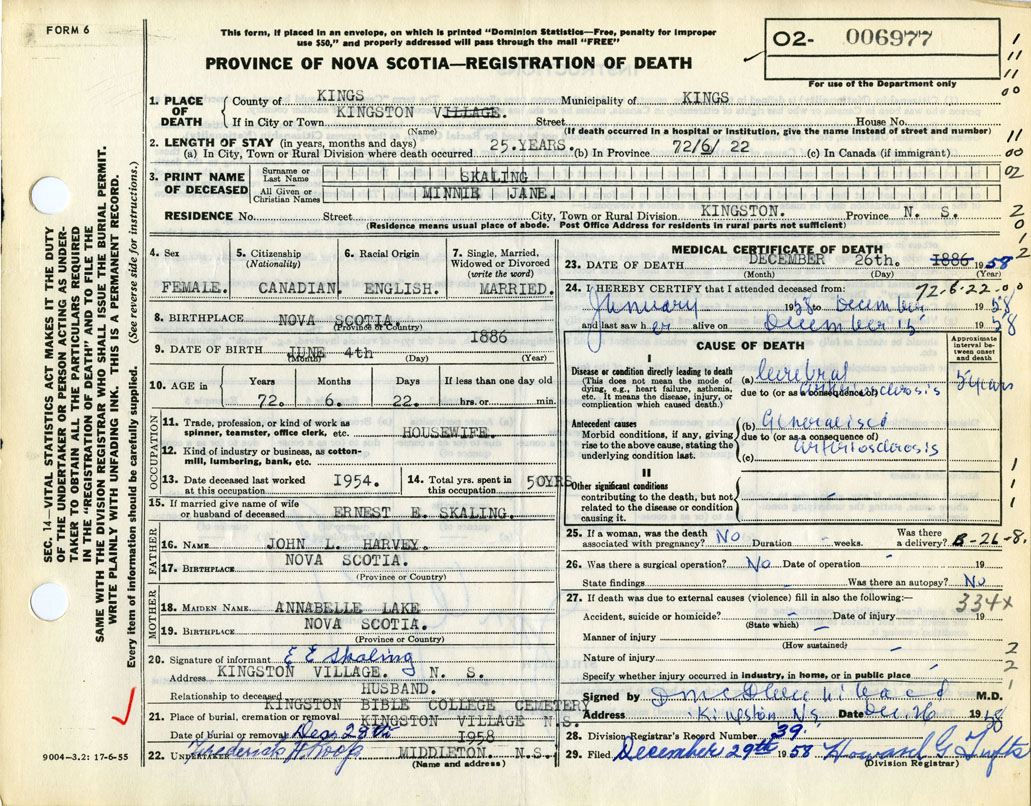 FORM 6
This form, if placed in an envelope, on which is printed "Dominion Statistics—Free, penalty for improper
use $50," and properly addressed will pass through the mail "FREE"
PROVINCE OF NOVA SCOTIA—REGISTRATION OF DEATH
O2- 006977
For use of the Department only
1. PLACE OF DEATH County of KINGS Municipality of KINGS
If in City or Town KINGSTON VILLAGE. Street House No.
(Name) (If death occurred in a hospital or institution, give the name instead of street and number)
2. LENGTH OF STAY (in years, months and days)
(a) In City, Town or Rural Division where death occurred 25.YEARS. (b) In Province 72/6/ 22 (c) In Canada (if immigrant)
3. PRINT NAME OF DECEASED Surname or Last Name SKALING
All Given or Christian Names MINNIE JANE.
RESIDENCE No. Street City, Town or Rural Division KINGSTON. Province N. S.
(Residence means usual place of abode. Post Office Address for residents in rural parts not sufficient)
4. Sex FEMALE.
5. Citizenship (Nationality) CANADIAN.
6. Racial Origin ENGLISH.
7. Single, Married, Widowed or Divorced (write the word) MARRIED.
8. BIRTHPLACE NOVA SCOTIA.
(Province or Country)
9. DATE OF BIRTH JUNE 4th 1886
(Month) (Day) (Year)
10. AGE in Years Months Days If less than one day old
72. 6. 22. hrs. or min.
OCCUPATION
11. Trade, profession, or kind of work as
spinner, teamster, office clerk, etc. HOUSEWIFE.
12. Kind of industry or business, as cotton-
mill, lumbering, bank, etc.
13. Date deceased last worked at this occupation 1954. 14. Total yrs. spent in this occupation 50YRS
15. If married give name of wife
or husband of deceased ERNEST E. SKALING.
FATHER
16. NAME JOHN L. HARVEY.
17. BIRTHPLACE NOVA SCOTIA.
(Province or Country)
MOTHER
18. MAIDEN NAME ANNABELLE LAKE
19. BIRTHPLACE NOVA SCOTIA.
(Province or Country)
20. Signature of informant E E Skaling
Address KINGSTON VILLAGE. N. S.
Relationship to deceased HUSBAND.
KINGSTON BIBLE COLLEGE CEMETERY
21. Place of burial, cremation or removal KINGSTON VILLAGE N.S.
Date of burial or removal Dec 28th 1958
22. UNDERTAKER Frederick W. Roop MIDDLETON. N.S.
(Name and address)
MEDICAL CERTIFICATE OF DEATH
23. DATE OF DEATH DECEMBER 26th. 1886 1958
(Month) (Day) (Year)
24. I HEREBY CERTIFY that I attended deceased from: 72-6-22-00
January 1958 to December 1958
and last saw her alive on December 15 1958
CAUSE OF DEATH
Approximate interval between onset and death
I
Disease or condition directly leading to death
(This does not mean the mode of
dying, e.g., heart failure, asthenia,
etc. It means the disease, injury, or
complication which caused death.)
(a) Cerebral arteriosclerosis 5 years
due to (or as a consequence of)
Antecedent causes
Morbid conditions, if any, giving
rise to the above cause, stating the
underlying condition last.
(b) Generalised arteriosclerosis
due to (or as a consequence of)
(c)
II
Other significant conditions
contributing to the death, but not
related to the disease or condition
causing it. -
25. If a woman, was the death associated with pregnancy? No Duration - weeks. Was there a delivery? B-26-8.
26. Was there a surgical operation? No Date of operation 19
State findings - Was there an autopsy? No
27. If death was due to external causes (violence) fill in also the following:— 334x
Accident, suicide or homicide? - Date of injury 19
(State which)
Manner of injury -
(How sustained)
Nature of injury -
Specify whether injury occurred in industry, in home, or in public place
Signed by M.D.
Address Kingston NS. Date Dec. 26 1958
28. Division Registrar's Record Number 39.
29. Filed December 29th 1958 Howard G Tufts
(Division Registrar)
SEC. 14—VITAL STATISTICS ACT MAKES IT THE DUTY
OF THE UNDERTAKER OR PERSON ACTING AS UNDER-
TAKER TO OBTAIN ALL THE PARTICULARS REQUIRED
IN THE "REGISTRATION OF DEATH" AND TO FILE THE
SAME WITH THE DIVISION REGISTRAR WHO SHALL ISSUE THE BURIAL PERMIT.
WRITE PLAINLY WITH UNFADING INK. THIS IS A PERMANENT RECORD.
Every item of information should be carefully supplied. (See reverse side for instructions.)
9004—3.2: 17-6-55
1
11
11
00
11
00
02
2
0
1
2
1
1
1
2
2
1